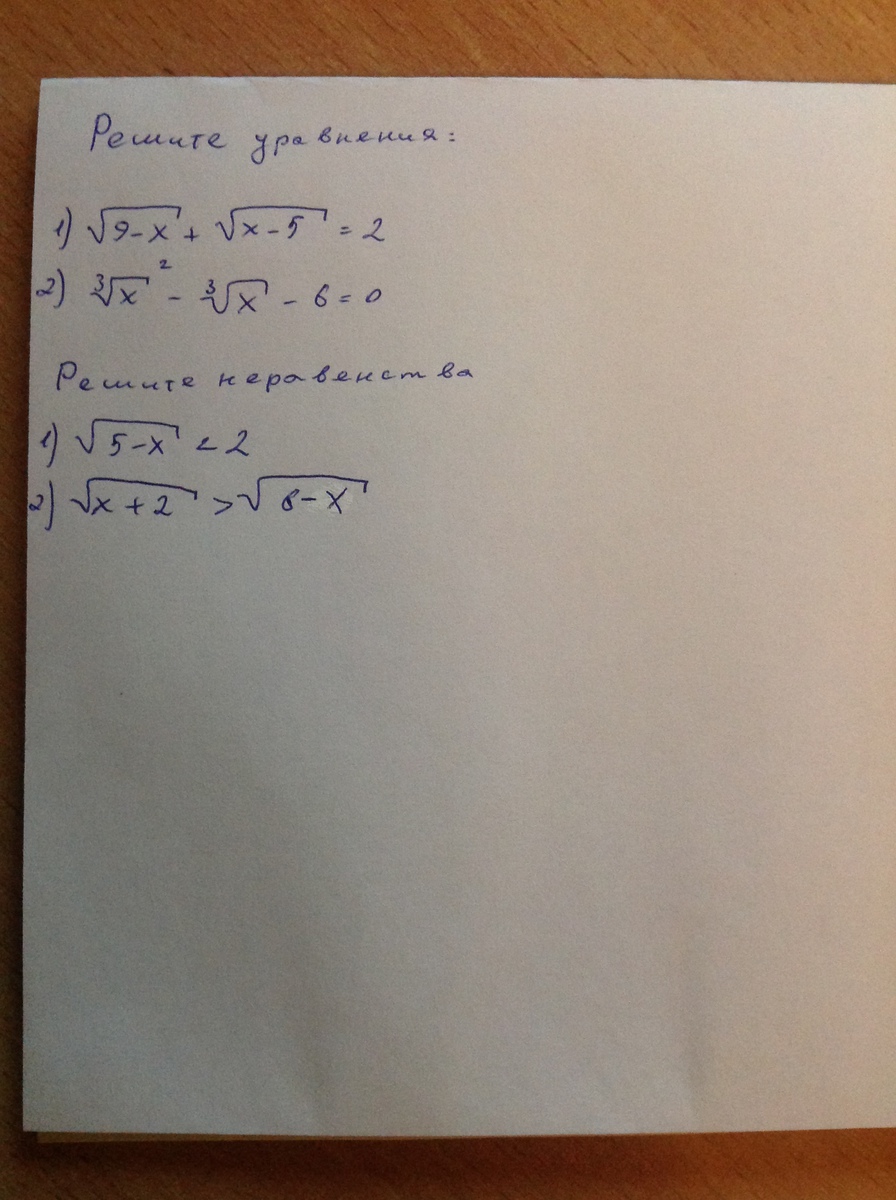 Решите уравнения:
1) √9-x + √x-5 = 2
2) ∛x² - ∛x - 6 = 0
Решите неравенства
1) √5-x < 2
2) √x+2 > √8-x